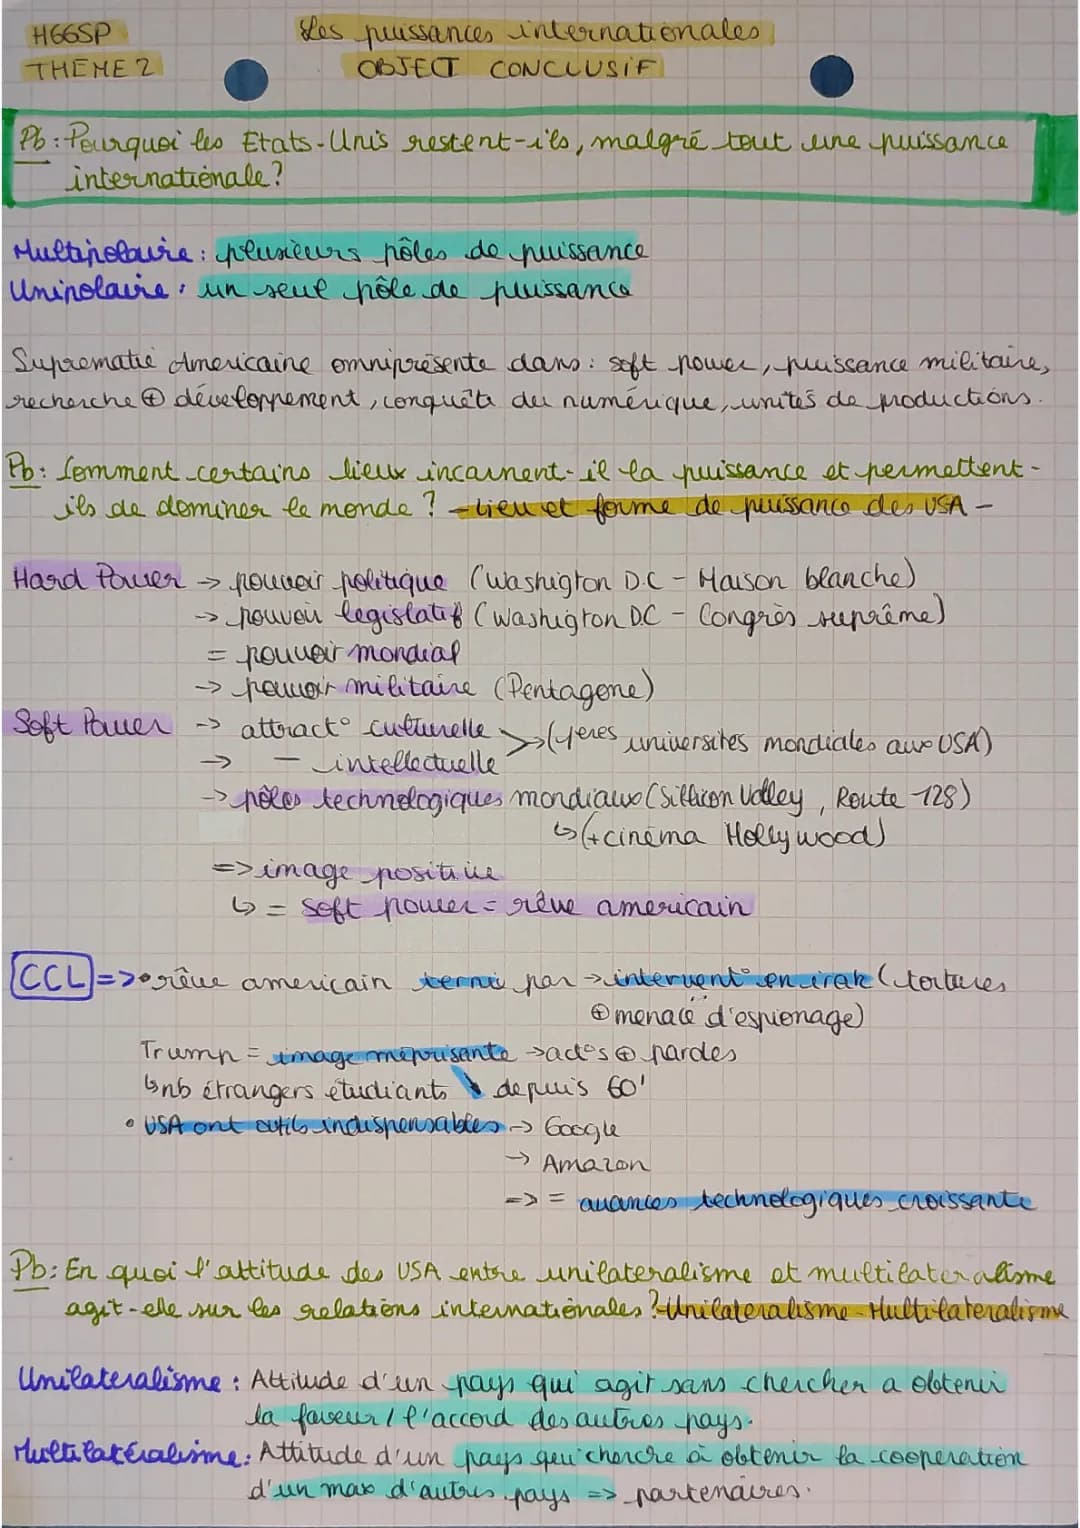 HGGSP
Les puissances internationales
THEME 2
OBJECT CONCLUSIF
Pb : Pourquoi les Etats-Unis restent-ils, malgré tout une puissance
internationale ?
Multipolaire : plusieurs pôles de puissance
Unipolaire : un seul pôle de puissance
Suprematie Americaine omniprésente dans : soft power, puissance militaire,
recherche ⊕ développement, conquête du numérique, unités de productions.
Pb : Comment certains lieux incarnent-il la puissance et permettent-
ils de dominer le monde ? - Lieu et forme de puissance des USA -
Hard Power → pouvoir politique (Washigton D.C - Maison blanche)
→ pouvoir legislatif (Washigton D.C - Congrès suprême)
= pouvoir mondial
→ pouvoir militaire (Pentagone)
Soft Power → attract° culturelle
→ — intellectuelle
> (4 eres universités mondiales aux USA)
→ pôles technologiques mondiaux (Sillicon Valley, Route 128)
↳ (+ cinéma Hollywood)
=> image positive
↳ = soft power = rêve americain
CCL => • rêve americain terni par → intervent° en irak (tortures
⊕ menace d'espionage)
Trump = image méprisante → act°s ⊕ pardes
↳ nb étrangers étudiants ↘ depuis 60'
• USA ont outils indispensables → Google
→ Amazon
=> = avances technologiques croissante
Pb : En quoi l'attitude des USA entre unilateralisme et multilateralisme
agit-elle sur les relations internationales ? - Unilateralisme - Multilateralisme
Unilateralisme : Attitude d'un pays qui agit sans chercher a obtenir
la faveur / l'accord des autres pays.
Multilatéralisme : Attitude d'un pays qui cherche à obtenir la cooperation
d'un max d'autres pays => partenaires.